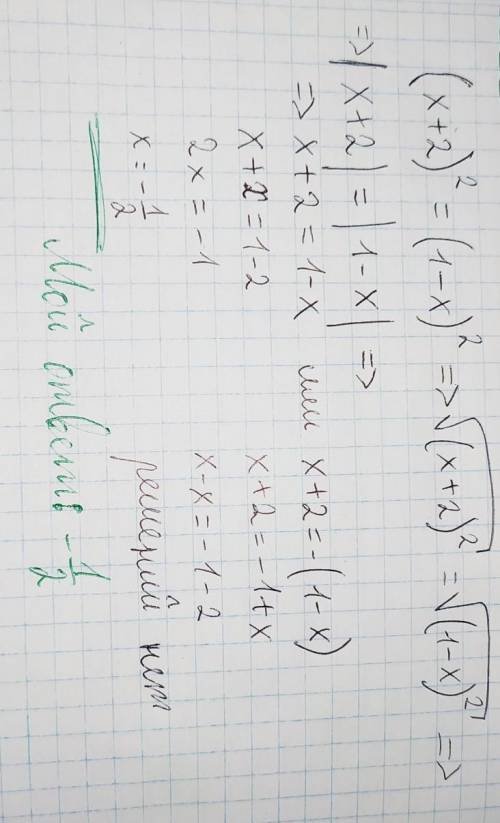 (x+2)² = (1-x)² => √(x+2)² = √(1-x)² =>
=> |x+2| = |1-x| =>
=> x+2 = 1-x или x+2 = -(1-x)
x+x = 1-2 x+2 = -1+x
2x = -1 x-x = -1-2
x = -1/2 решений нет
Мой ответ: -1/2